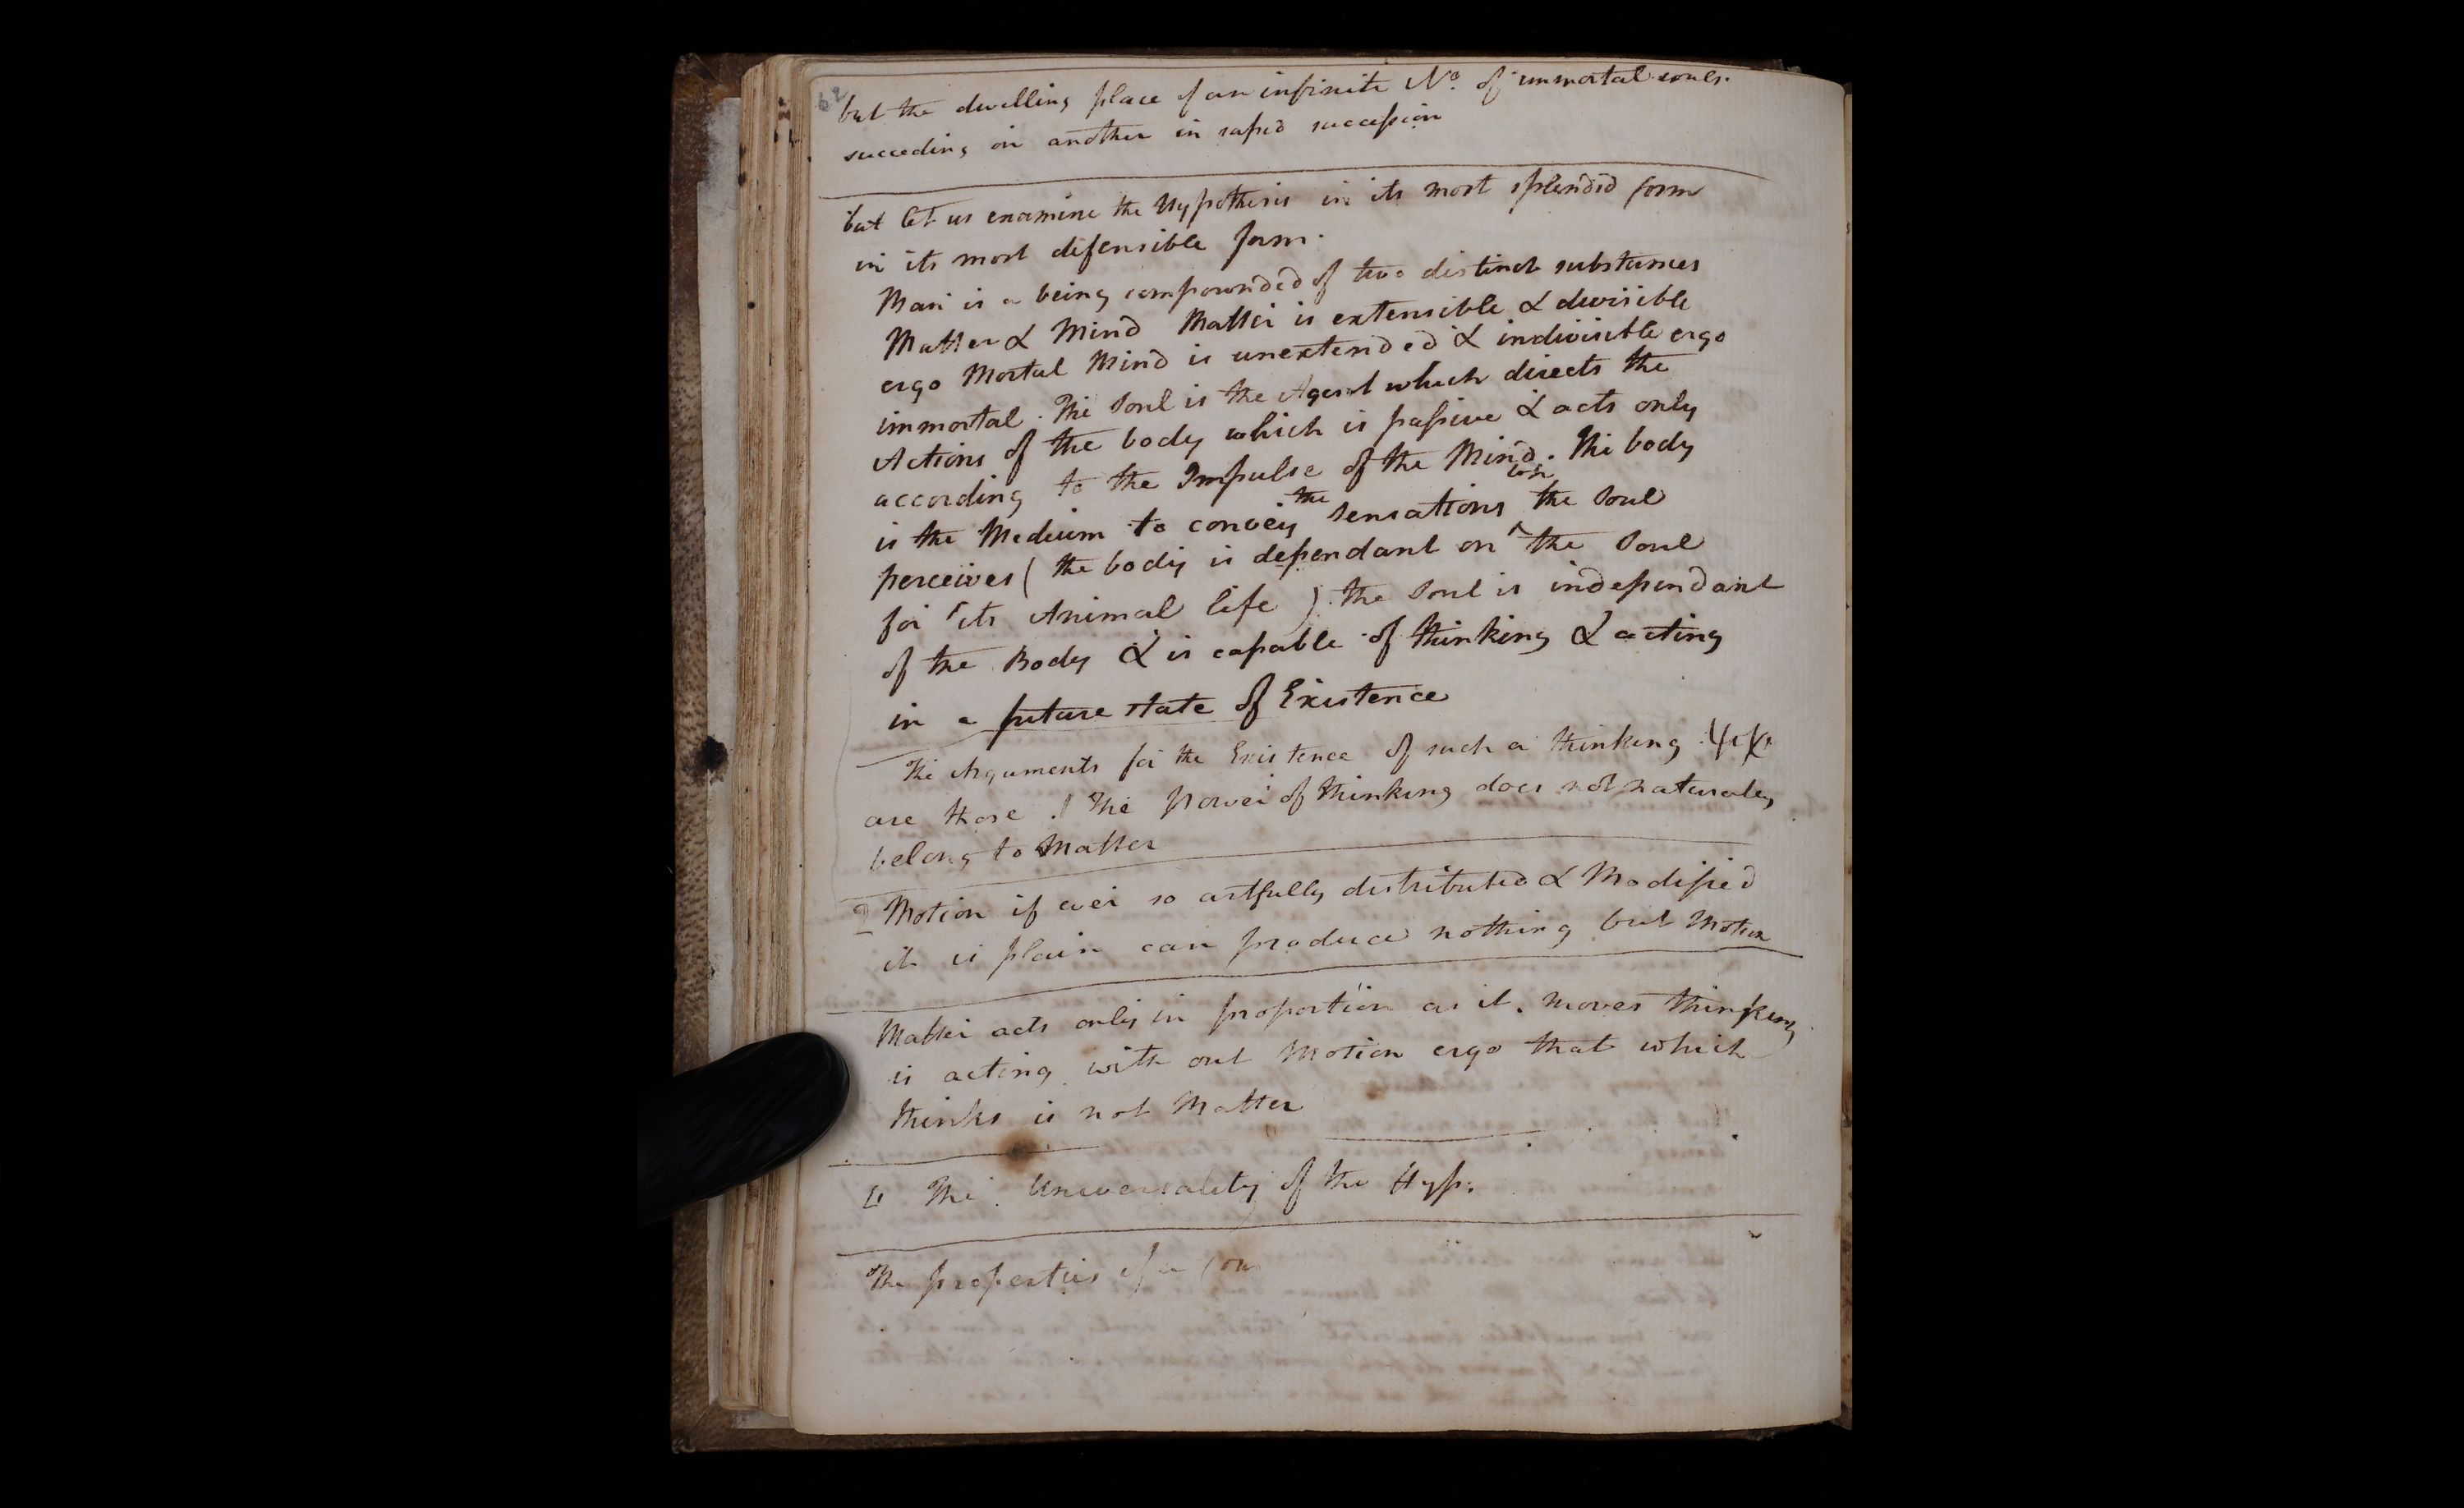 62
but the dwelling place of an infinite No. of immortal souls.
succeding on another in rapid succession
but let us examine the Hypothesis in its most splendid form
in its most defensible form.
Man is a being compounded of two distinct substances
Matter & Mind Matter is extensible & divisible
ergo Mortal Mind is unextended & indivisible ergo
immortal. The Soul is the Agent which directs the
Actions of the body which is passive & acts only
according to the Impulse of the Mind. The body
is the Medium to convey the sensations the Soul
perceives ( the body is dependant on the Soul
for its Animal life ) the Soul is independant
of the Body & is capable of thinking & acting
in a future state of Existence
The Arguments for the Existence of such a thinking
are those. 1 The power of thinking does not naturaley
belong to Matter
2 Motion if ever so artfully distributed & Modified
it is plain can produce nothing but Motion
Matter acts only in proportion as it moves thinking
is acting with out Motion ergo that which
thinks is not Matter
The Universality of the Hyp:
The properties of a